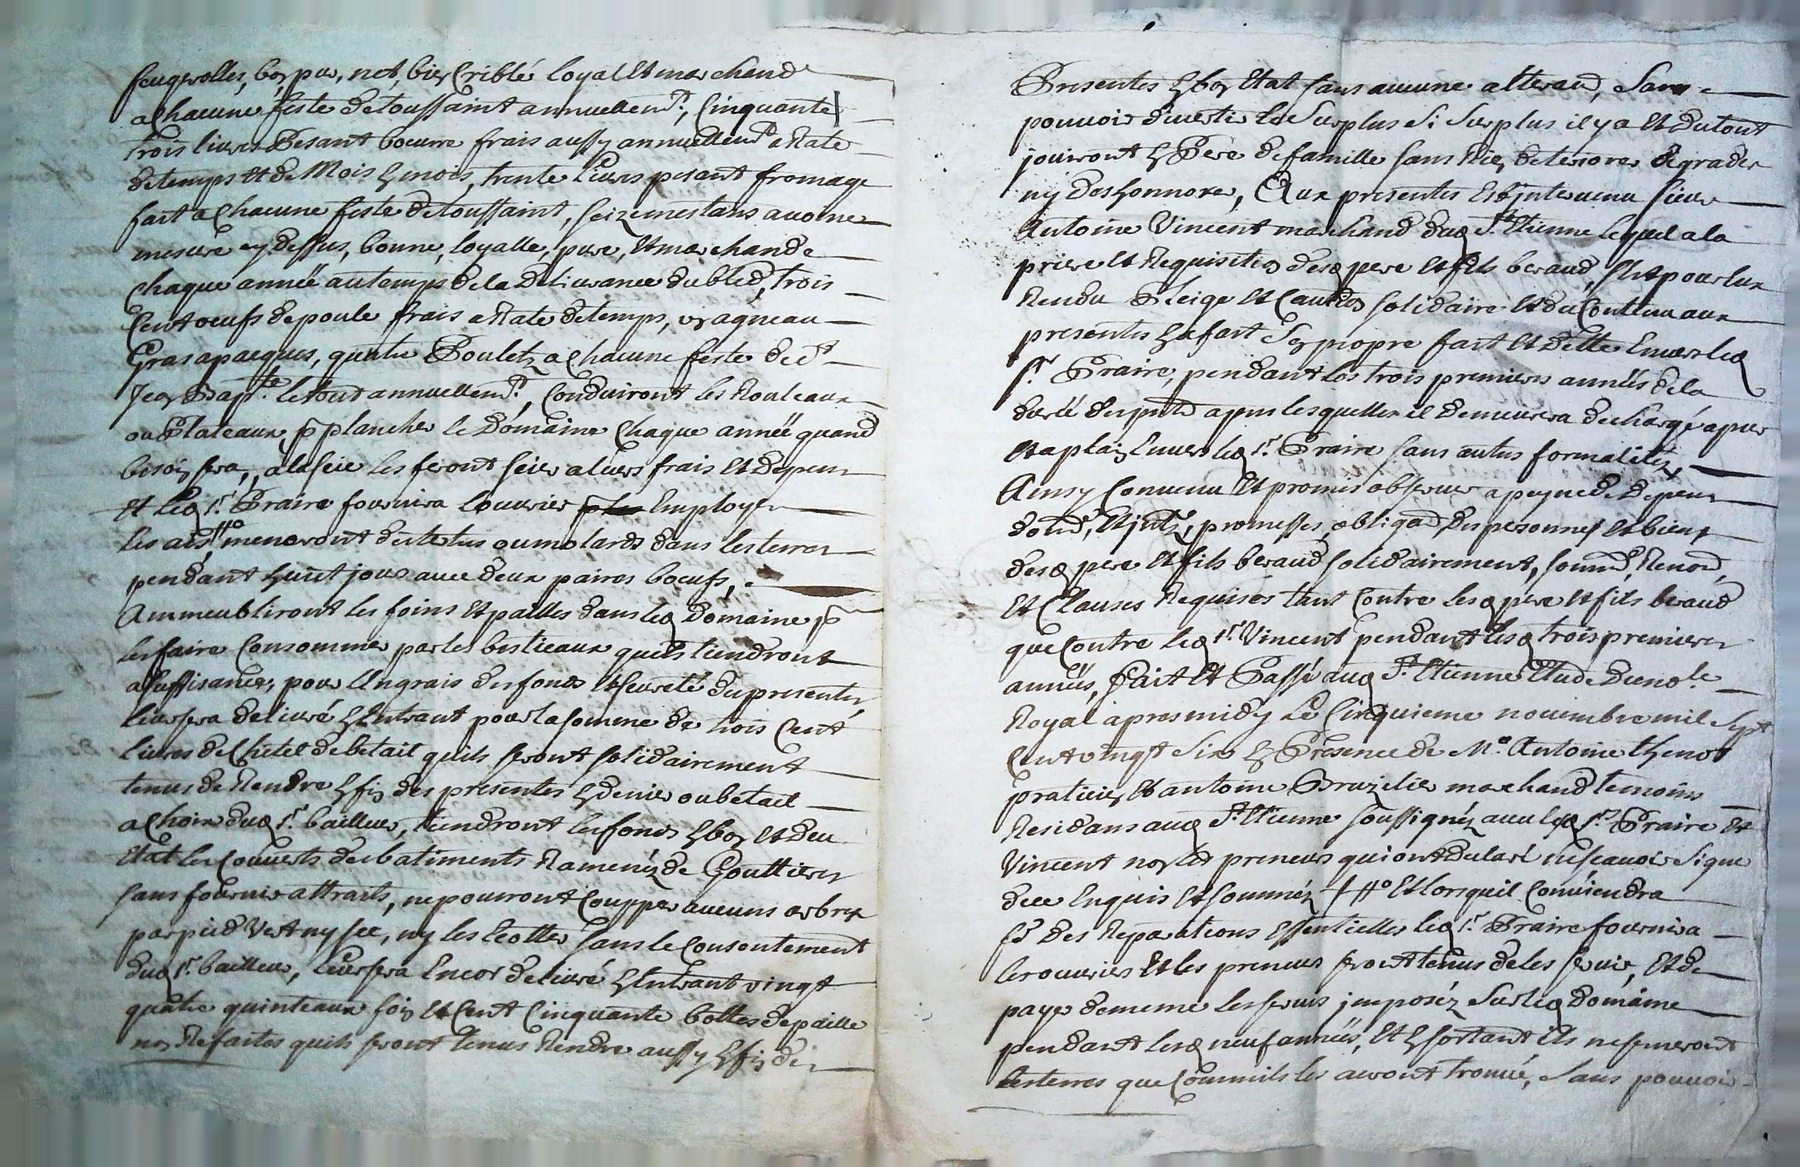 feugerolles, bon pur, net, bien criblé loyal et marchand
a chacune feste de toussaint annuellemt, cinquante
trois livres pesant beurre frais aussy annuellemt a rate
de temps et de mois en mois, trente livres pesant fromage
fait a chacune feste de toussaint, seize mestans avoine
mesure cy dessus, bonne, loyalle, pure, et marchande
chaque année au temps de la delivrance du bled, trois
cent oeufs de poule frais a rate de temps, un agneau
gras a pacques, quatre poulets a chacune feste de st
jean bapte le tout annuellemt, conduiront les rouleaux
ou plateaux, pr plancher le domaine chaque année quand
besoin sera, a la scie les feront scier a leurs frais et depens
et led sr Praire fournira l'ouvrier employer
les ais meneront des tetus ou molards dans les terres
pendant huit jours avec deux paires boeufs,
Ammeubliront les foins et pailles dans led domaine pr
les faire consommer par les bestieaux quils tiendront
a suffisance, pour l'engrais des fonds et seureté du presentes,
leur sera delivré en entrant pour la somme de trois cent
livres de chetel de betail quils seront solidairement
tenus de rendre en fin des presentes en denier ou betail
a choix dud sr bailleur, tiendront les fonds en bon et deu
Etat les couverts des batiments ramenés de gouttieres
sans fournir attraits, ne pouront coupper aucuns arbres
par pied vert ny sec, ny les ecotter sans le consentement
dud sr bailleur, leur sera encor delivré en entrant vingt
quatre quinteaux foin et cent cinquante bottes de paille
non refaites quils seront tenus rendre aussy en fin des
Presentes en bon Etat sans aucune alterаon, sans
pouvoir divertir le surplus si surplus il y a et du tout
jouiront en Pere de famille sans rien deteriorer degrader
ny deshonnorer, Aux presentes est intervenu sieur
Antoine Vincent marchand dud st Etienne lequel a la
priere et requisition desd pere et fils beraud, s'est pour eux
rendu Pleige et caution solidaire et du contenu aux
presentes en a fait son propre fait et dette envers led
sr Praire, pendant les trois premieres années de la
durée des pntes apres lesquelles il demeurera dechargé a pur
et a plain envers led sr Praire sans autres formalités
Ainsy convenu et promis observer a peyne de depens
domd, et intz, promesses, obligaon, des personnes et biens
desd pere et fils beraud solidairement, soumon, renon,
et clauses requises tant contre lesd pere et fils beraud
que contre led sr Vincent pendant lesd trois premieres
années, fait et Passé aud st Etienne Etude du nore
Royal apres midy le cinquieme novembre mil sept
cent vingt six en Presence de Me Antoine thenot
praticien et antoine Bruzilier marchand temoins
residans aud st Etienne soussignéz avec led sr Praire et
Vincent non les preneurs qui ont declaré ne sçavoir signer
de ce enquis et sommés et lorsquil conviendra
fe des reparations essentielles led sr Praire fournira
les ouvriers et les preneurs seront tenus de les servir, et de
payer de meme les servis imposéz sur led domaine
pendant lesd neuf années, et en sortant ils ne semeront
les terres que comme ils les auront trouvé, sans pouvoir